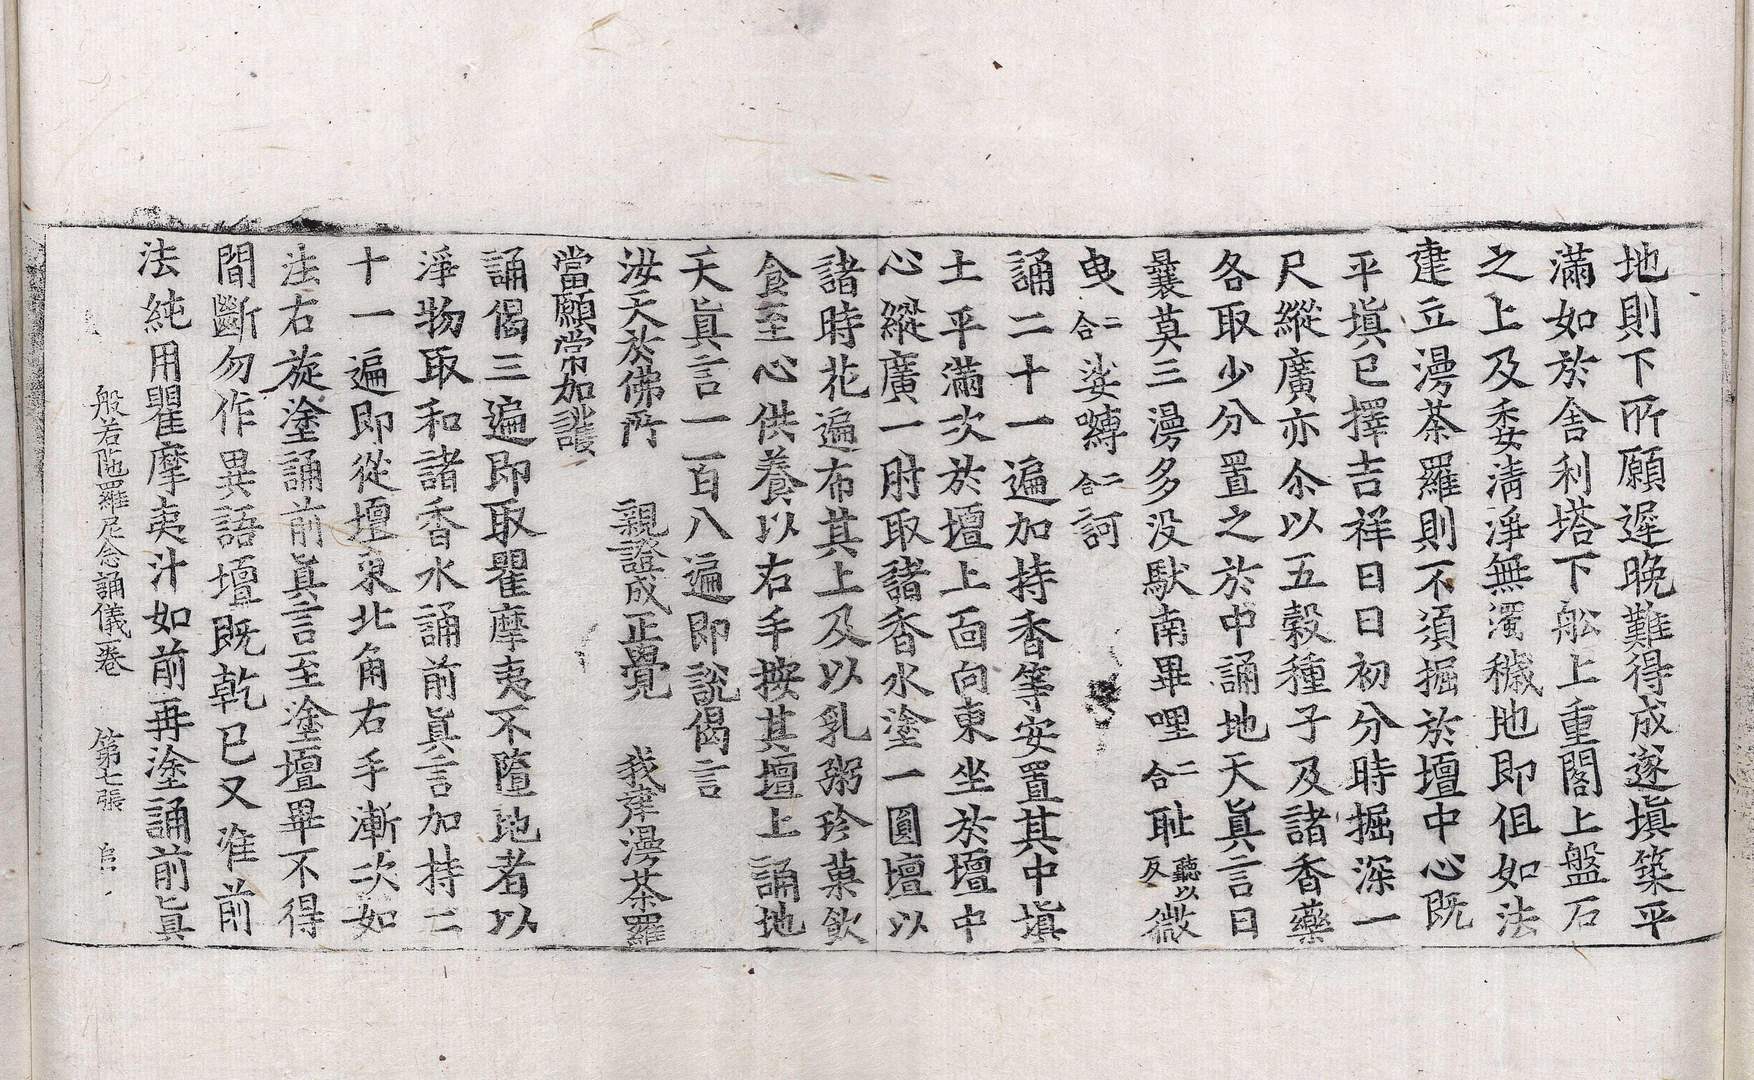 地則下所願遲晚難得成遂塡築平
滿如於舍利塔下舩上重閣上盤石
之上及委清淨無濁穢地即但如法
建立漫荼羅則不須掘於壇中心既
平塡已擇吉祥日日初分時掘深一
尺縱廣亦尒以五穀種子及諸香藥
各取少分置之於中誦地天眞言曰
曩莫三漫多没馱南畢哩二合耻聽以反微
曳二合娑嚩二合訶
誦二十一遍加持香等安置其中塡
土平滿次於壇上面向東坐於壇中
心縱廣一肘取諸香水塗一圓壇以
諸時花遍布其上及以乳粥珍菓飲
食至心供養以右手按其壇上誦地
天眞言一百八遍即説偈言
汝天於佛所　親證成正覺　我葺漫荼羅
當願常加護
誦偈三遍即取瞿摩夷不墮地者以
淨物取和諸香水誦前眞言加持二
十一遍即從壇東北角右手漸次如
法右旋塗誦前眞言至塗壇畢不得
間斷勿作異語壇既乾已又准前
法純用瞿摩夷汁如前再塗誦前眞
般若陁羅尼念誦儀一卷　第七張